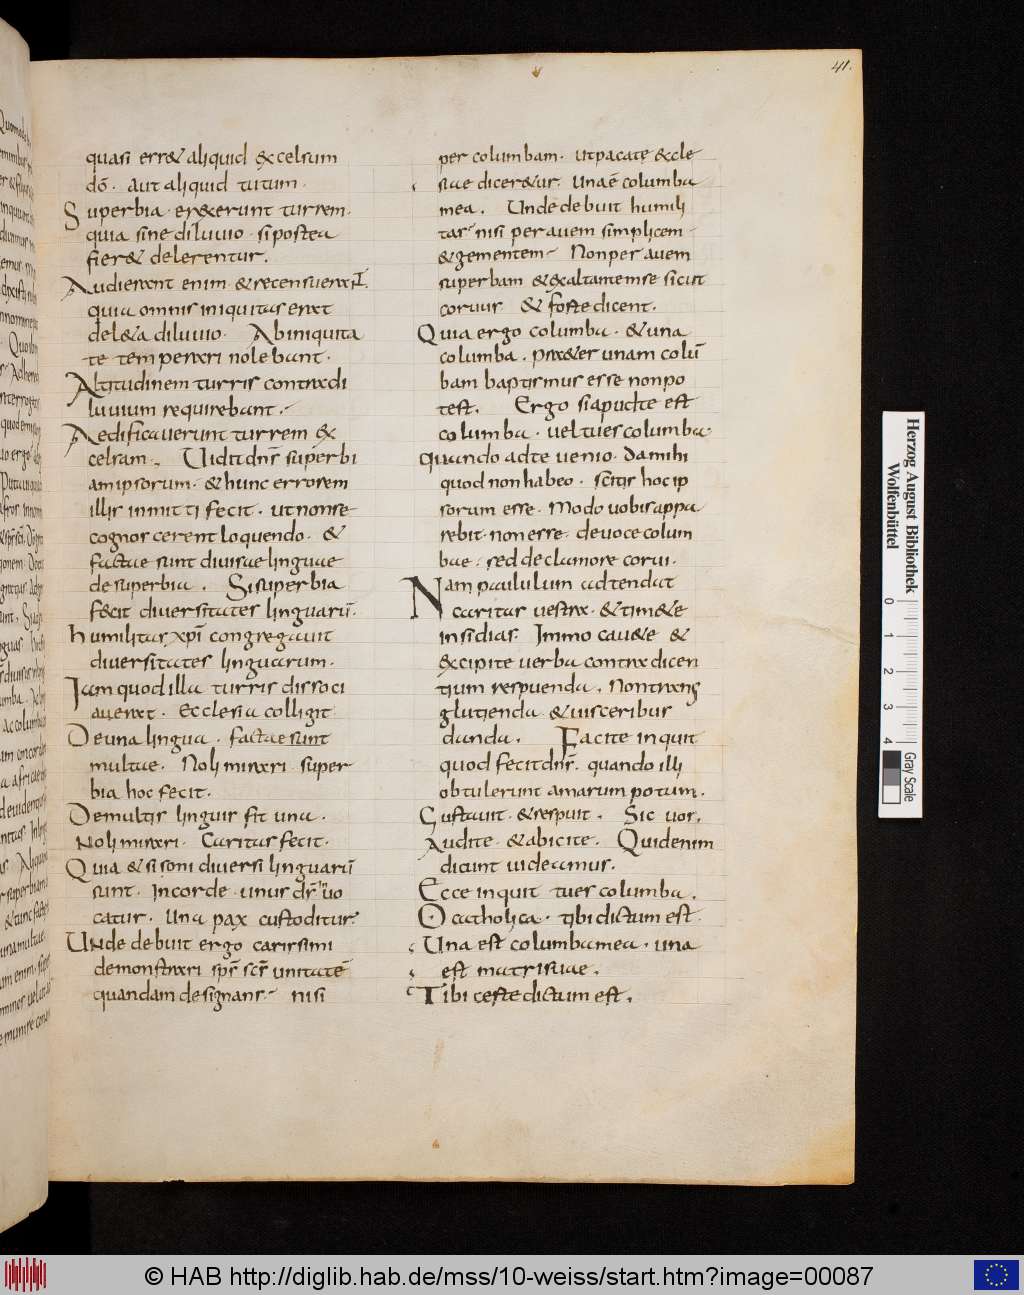 41.
quasi err& aliquid excelsum
dō. aut aliquid tutum.
Superbia erexerunt turrem.
quia sine diluuio. si postea
fier& delerentur.
Audierant enim & recensuerant.
quia omnis iniquitas erat
del&a diluuio. Ab iniquita
te temperari nolebant.
Altitudinem turris contra di
luuium requirebant.
Aedificauerunt turrem ex
celsam. Uidit dn̄s superbi
am ipsorum. & hunc errorem
illis inmitti fecit. ut non se
cognoscerent loquendo. &
factae sunt diuisae linguae
de superbia. Si superbia
fecit diuersitates linguarū.
humilitas xp̄i congregauit
diuersitates linguarum.
Iam quod illa turris dissoci
auerat. Ecclesia colligit
De una lingua. factae sunt
multae. Noli mirari superbia
bia hoc fecit.
De multis linguis fit una.
Noli mirari. Caritas fecit.
Quia & si soni diuersi linguarū
sunt. In corde unus dr̄ uo
catur. Una pax custoditur.
Unde debuit ergo carissimi
demonstrari sp̄s sc̄s unitatē
quandam designans. nisi
per columbam. ut pacate eccle
siae dicer&ur. Una ē columba
mea. Unde debuit humili
tas nisi per auem simplicem
& gementem. Non per auem
superbam & exaltantem se sicut
coruus. & forte dicent.
Quia ergo columba. & una
columba. praeter unam colū
bam baptismus esse non po
test. Ergo si apud te est
columba. uel tu es columba.
quando ad te uenio. da mihi
quod non habeo. scitis hoc ip
sorum esse. Modo uobis appa
rebit. non esse de uoce colum
bae. sed de clamore corui.
Nam paululum adtendat
caritas uestra. & tim&e
insidias. Immo cau&e &
excipite uerba contradicen
tium respuenda. Non trans
glutienda & uisceribus
danda. Facite inquit
quod fecit dn̄s. quando illi
obtulerunt amarum potum.
Gustauit. & respuit. Sic uos.
Audite. & abicite. Quid enim
dicunt uideamus.
Ecce inquit tu es columba.
O catholica. tibi dictum est
Una est columba mea. una
est matri suae.
Tibi certe dictum est.
Herzog August Bibliothek
Wolfenbüttel
0 1 2 3 4
Gray Scale
© HAB http://diglib.hab.de/mss/10-weiss/start.htm?image=00087